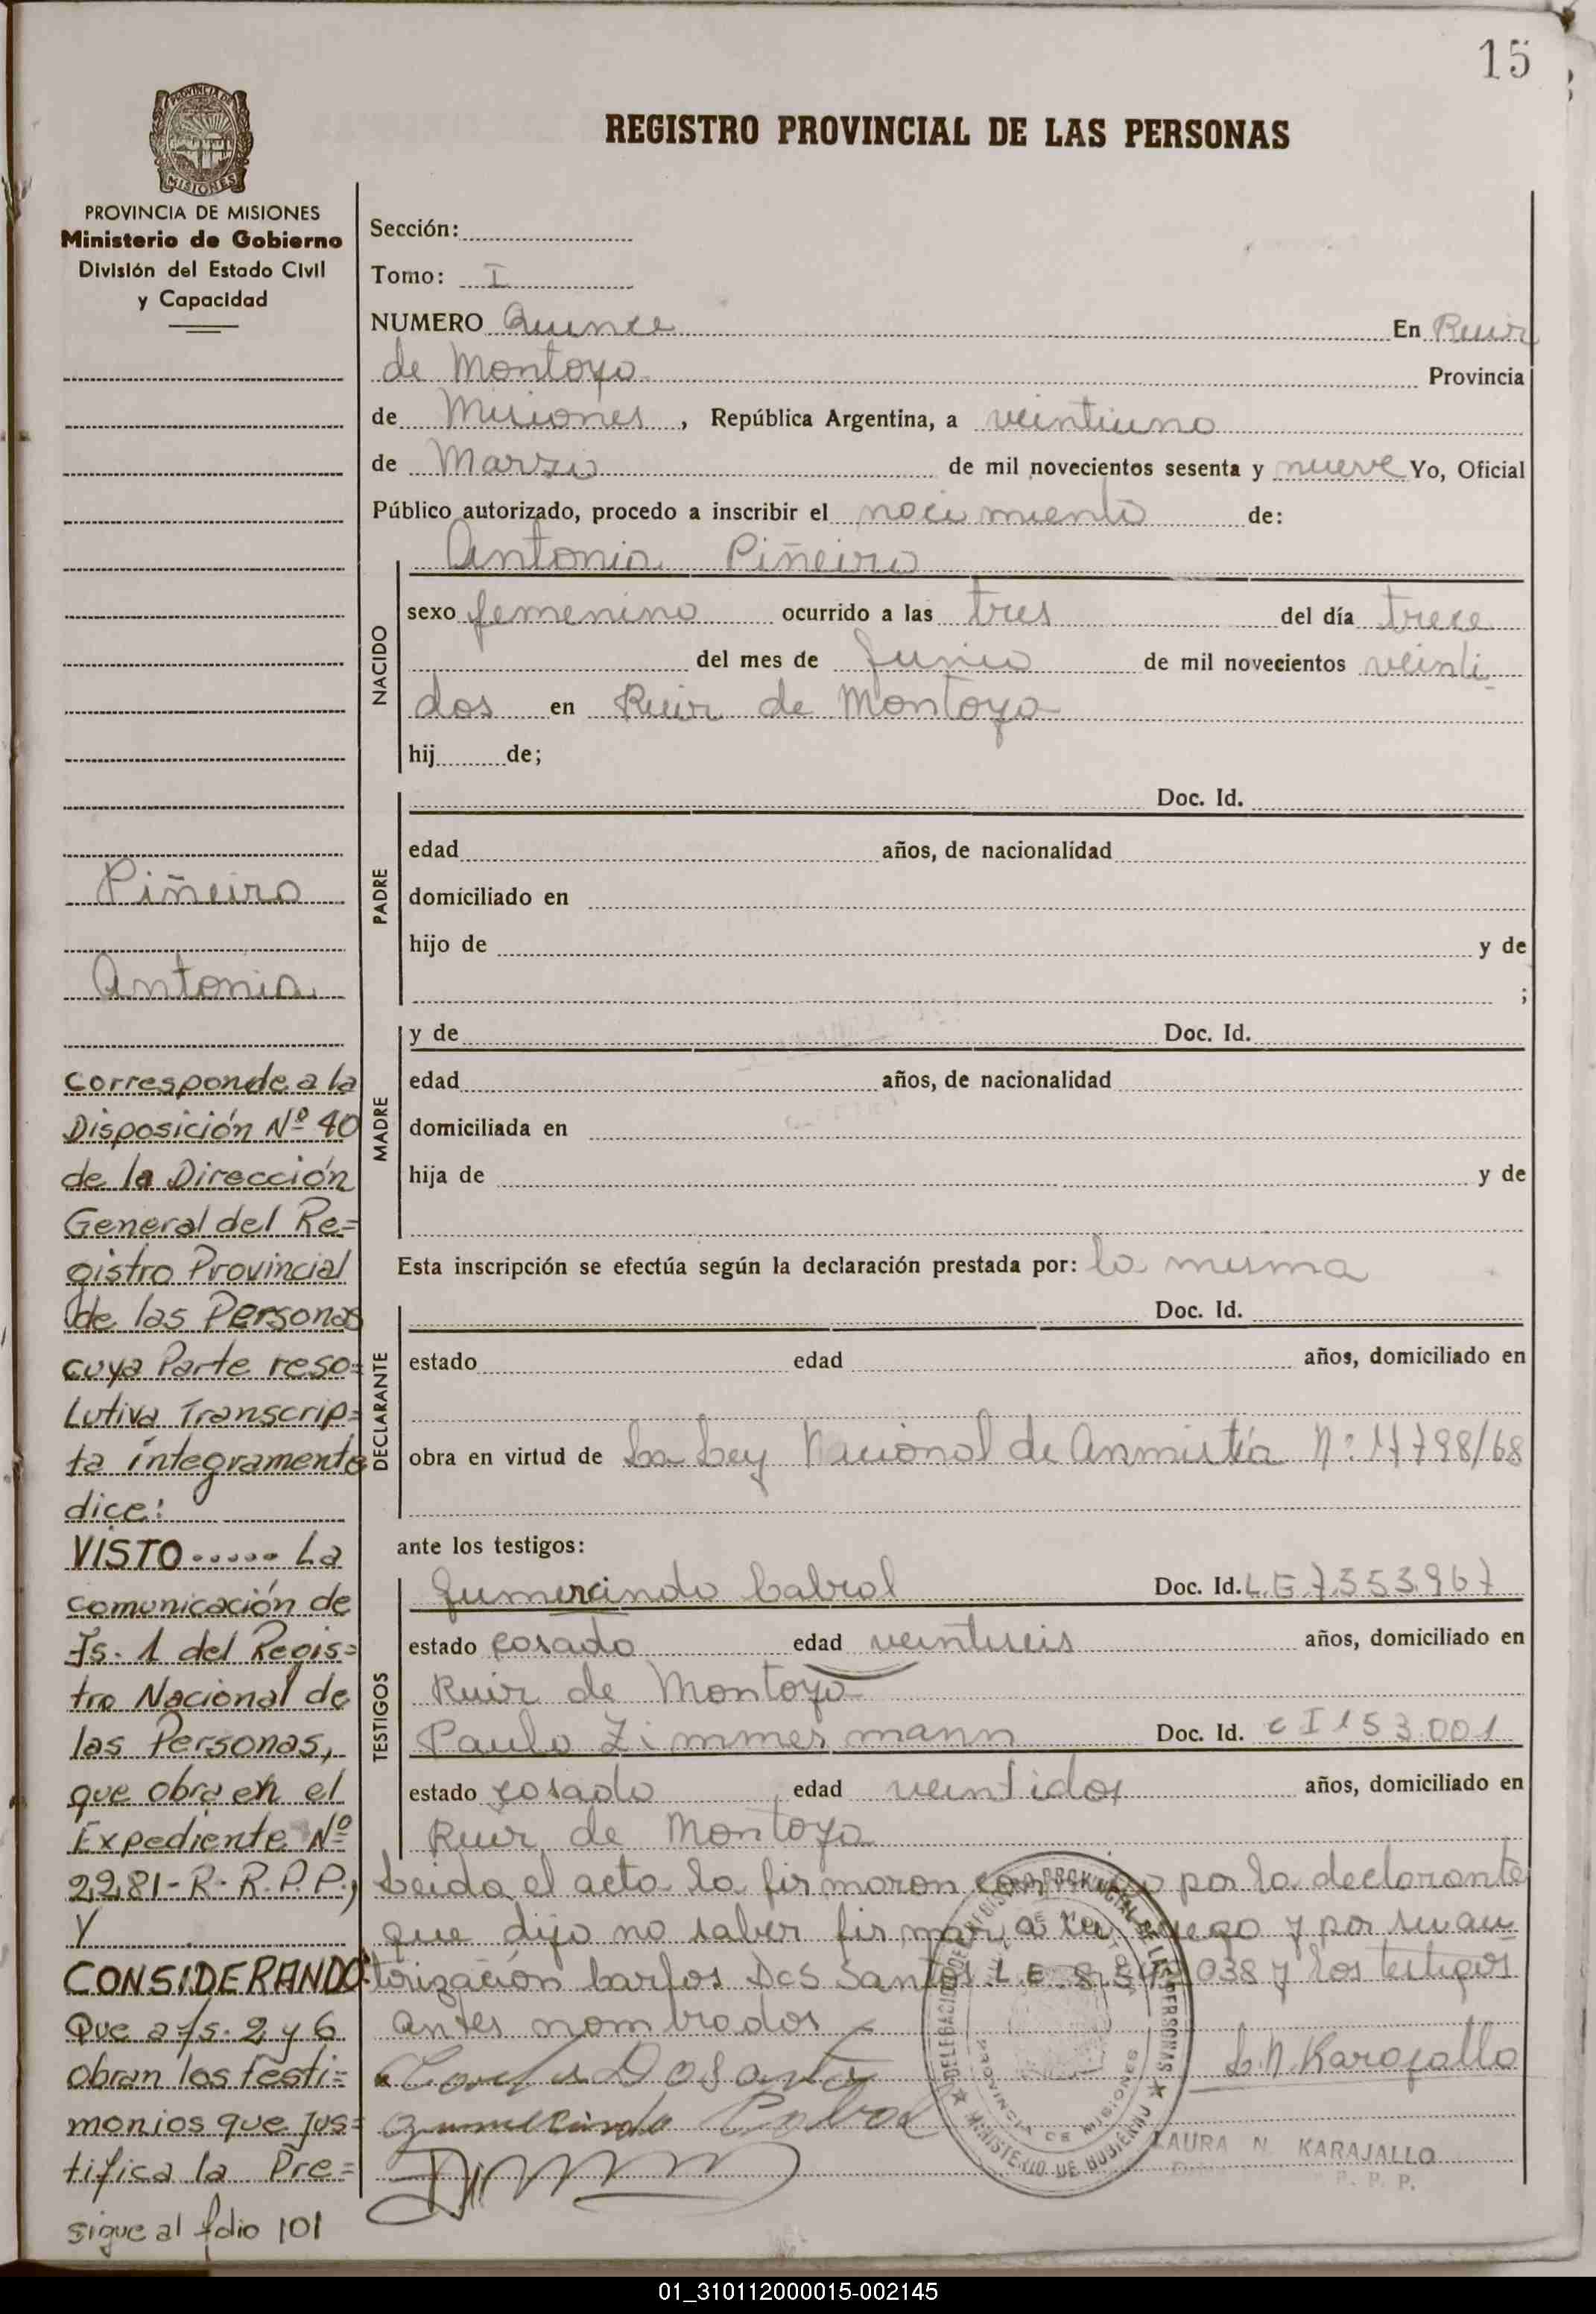 15
PROVINCIA DE
MISIONES
PROVINCIA DE MISIONES
Ministerio de Gobierno
División del Estado Civil
y Capacidad
Piñeiro
Antonia
Corresponde a la
Disposición Nº 40
de la Dirección
General del Re=
gistro Provincial
de las Personas
cuya Parte reso=
Lutiva Transcrip=
ta íntegramente
dice:
VISTO..... La
comunicación de
Fs. 1 del Regis=
tro Nacional de
las Personas,
que obra en el
Expediente Nº
2281-R-R.P.P.,
Y
CONSIDERANDO:
Que a fs. 2 y 6
obran los testi=
monios que jus=
tifica la Pre=
sigue al folio 101
REGISTRO PROVINCIAL DE LAS PERSONAS
Sección:
Tomo: I
NUMERO Quince En Ruiz
de Montoya Provincia
de Misiones, República Argentina, a veintiuno
de Marzo de mil novecientos sesenta y nueve Yo, Oficial
Público autorizado, procedo a inscribir el nacimiento de:
Antonia Piñeiro
NACIDO
sexo femenino ocurrido a las tres del día trece
del mes de Junio de mil novecientos veinti
dos en Ruiz de Montoya
hij de;
PADRE
Doc. Id.
edad años, de nacionalidad
domiciliado en
hijo de y de
;
MADRE
y de Doc. Id.
edad años, de nacionalidad
domiciliada en
hija de y de
Esta inscripción se efectúa según la declaración prestada por: la misma
DECLARANTE
Doc. Id.
estado edad años, domiciliado en
obra en virtud de La Ley Nacional de Anmistía N: 17798/68
ante los testigos:
TESTIGOS
Gumercindo Cabral Doc. Id. L.E 7.353.967
estado casado edad veintiseis años, domiciliado en
Ruiz de Montoya
Paulo Zimmermann Doc. Id. C I 153.001
estado casado edad veintidos años, domiciliado en
Ruiz de Montoya
Leida el acta la firmaron conmigo por la declarante
que dijo no saber firmar a su ruego y por su au
torización Carlos Dos Santos L E 038 y los testigos
antes nombrados
Carlos Dosantos
L.N. Karajallo
Gumercindo Cabral
DELEGACION DEL REGISTRO PROVINCIAL DE LAS PERSONAS
MINISTERIO DE GOBIERNO
PROVINCIA DE MISIONES
LAURA N. KARAJALLO
R. P. P.
01_310112000015-002145